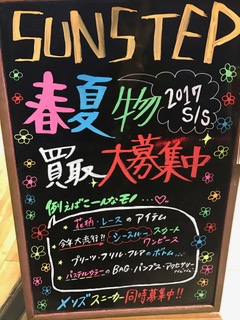 SUNSTEP
春夏物 2017 S/S
買取大募集中
例えばこーんなモノ…
★花柄・レースのアイテム
★今年大流行?! シースルースカート
ワンピース
★プリーツ・フリル・フレアのボトム…
★パステルカラーのBAG・パンプス・アクセサリー
メンズスニーカー同時募集中!!